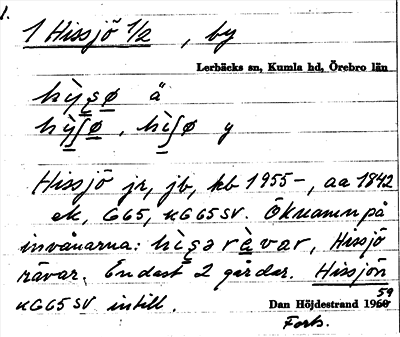 1.
1 Hissjö 1/2 , by
Lerbäcks sn, Kumla hd, Örebro län
hìʃø y
Hissjö jr, jb, kb 1955–, aa 1842
ek, G65, KG65SV. Öknamn på
invånarna: Hissjö
rävar. Endast 2 gårdar. Hissjön
59
KG65SV intill. Dan Höjdestrand 1960
Forts.